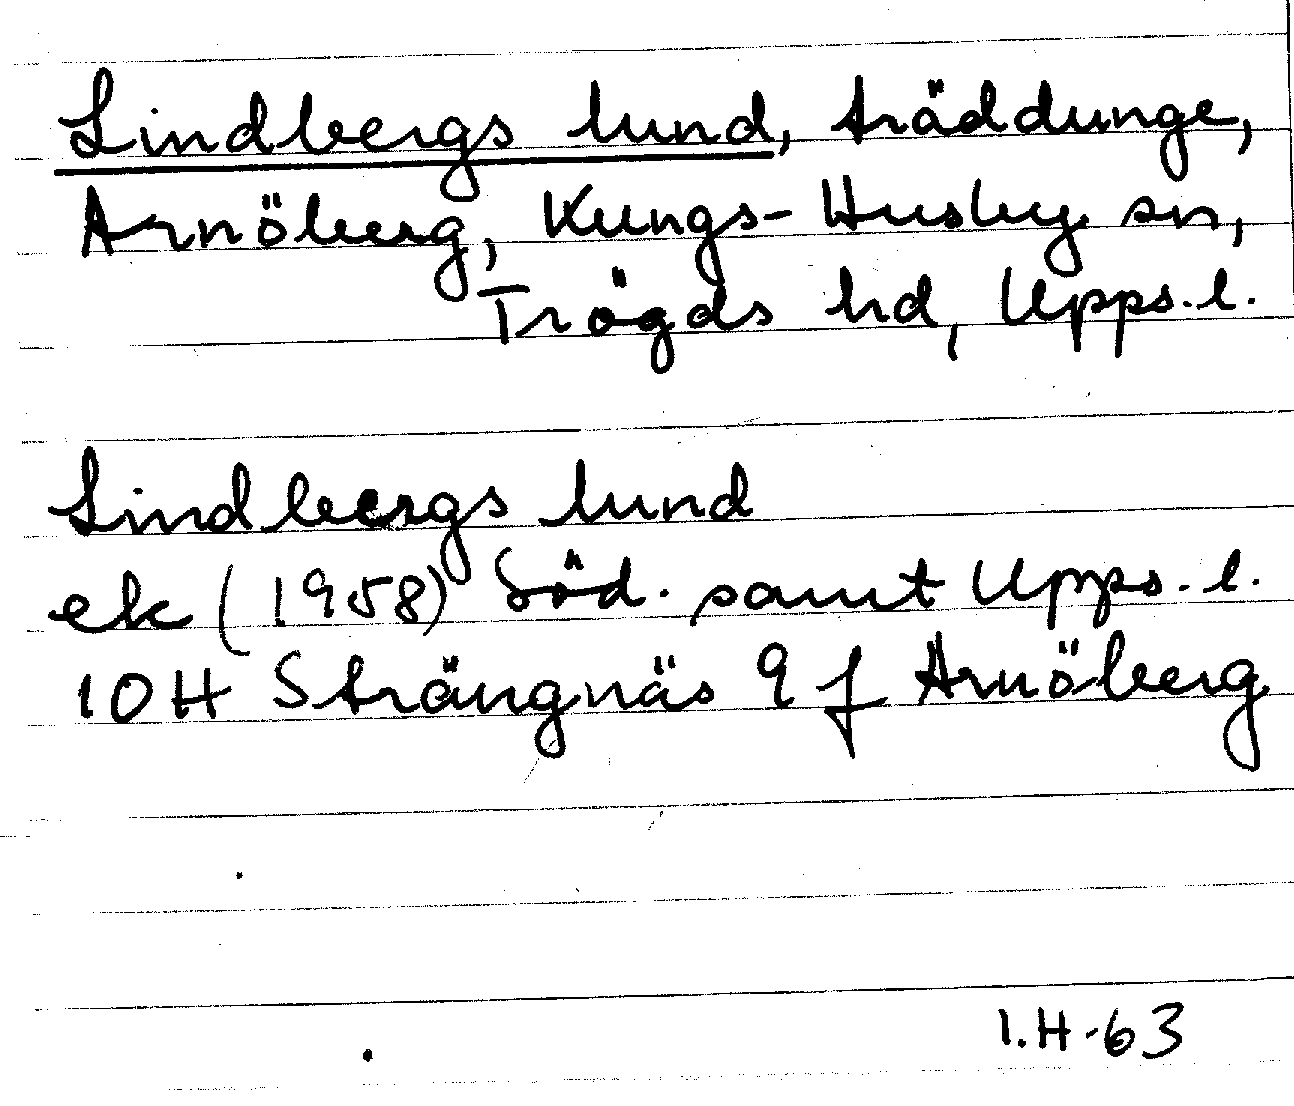 Lindbergs lund, träddunge,
Arnöberg, Kungs-Husby sn,
Trögds hd, Upps. l.
Lindbergs lund
ek (1958) Söd. samt Upps. l.
10H Strängnäs 9 f Arnöberg
I.H-63